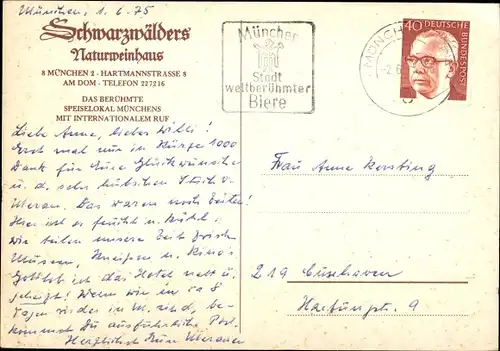 München, 1.6.75
Schwarzwälders
Naturweinhaus
8 MÜNCHEN 2 - HARTMANNSTRASSE 8
AM DOM - TELEFON 227216
DAS BERÜHMTE
SPEISELOKAL MÜNCHENS
MIT INTERNATIONALEM RUF
Liebe Anne, lieber Willi!
Doch mal nur in Kürze 1000
Dank für Eure Glückwünsche
u. d. sehr hübschen
Meran. Das waren noch Zeiten!
Hier ist es feucht u. kühl,
wir teilen unsere Zeit zwisch.
Museen, Kneipen u. Kinos
Gottlob ist das Hotel nett u.
geheizt! Wenn wir in ca 8
Tagen wieder in M. sind, be-
kommst Du ausführliche Post.
Herzlichst Eure
München
Stadt
weltberühmter
Biere
MÜNCH
40 DEUTSCHE
BUNDESPOST
Frau Anne Kersting
219 Cuxhaven
9